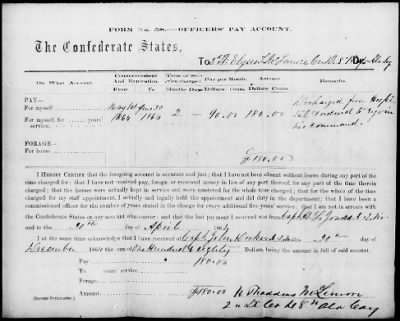 FORM No. 58.—OFFICERS' PAY ACCOUNT.
The Confederate States,
To
Dr.
ON WHAT ACCOUNT.
Commencement And Expiration.
Term of service charged
Pay per Month.
Amount.
Remarks.
From
To
Months
Days
Dollars.
Cents.
Dollars.
Cents.
PAY—
For myself,
For myself for years' service.
May 1st
1864
June 30
1864
2
—
90.00
180.00
Discharged from
his command.
FORAGE—
For horse
$180.00
I HEREBY CERTIFY that the foregoing account is accurate and just; that I have not been absent without leave during any part of the
time charged for; that I have not received pay, forage, or received money in lieu of any part thereof, for any part of the time therein
charged; that the horses were actually kept in service and were mustered for the whole time charged; that for the whole of the time
charged for my staff appointment, I actually and legally held the appointment and did duty in the department; that I have been a
commissioned officer for the number of years stated in the charge for every additional five years' service; that I am not in arrears with the
Confederate States on any account whatsoever; and that the last payment I received was from Capt
to the 30th day of April 1864
I at the same time acknowledge that I have received of Capt John
this 30th day of
December 1864 One Hundred & Eighty Dollars, being the amount in full of said account.
Pay
180.00
years' service,
Forage
Amount
$180.00
[SIGNED DUPLICATES.]
Thaddeus
2nd Lt Co 8th Ala Cav